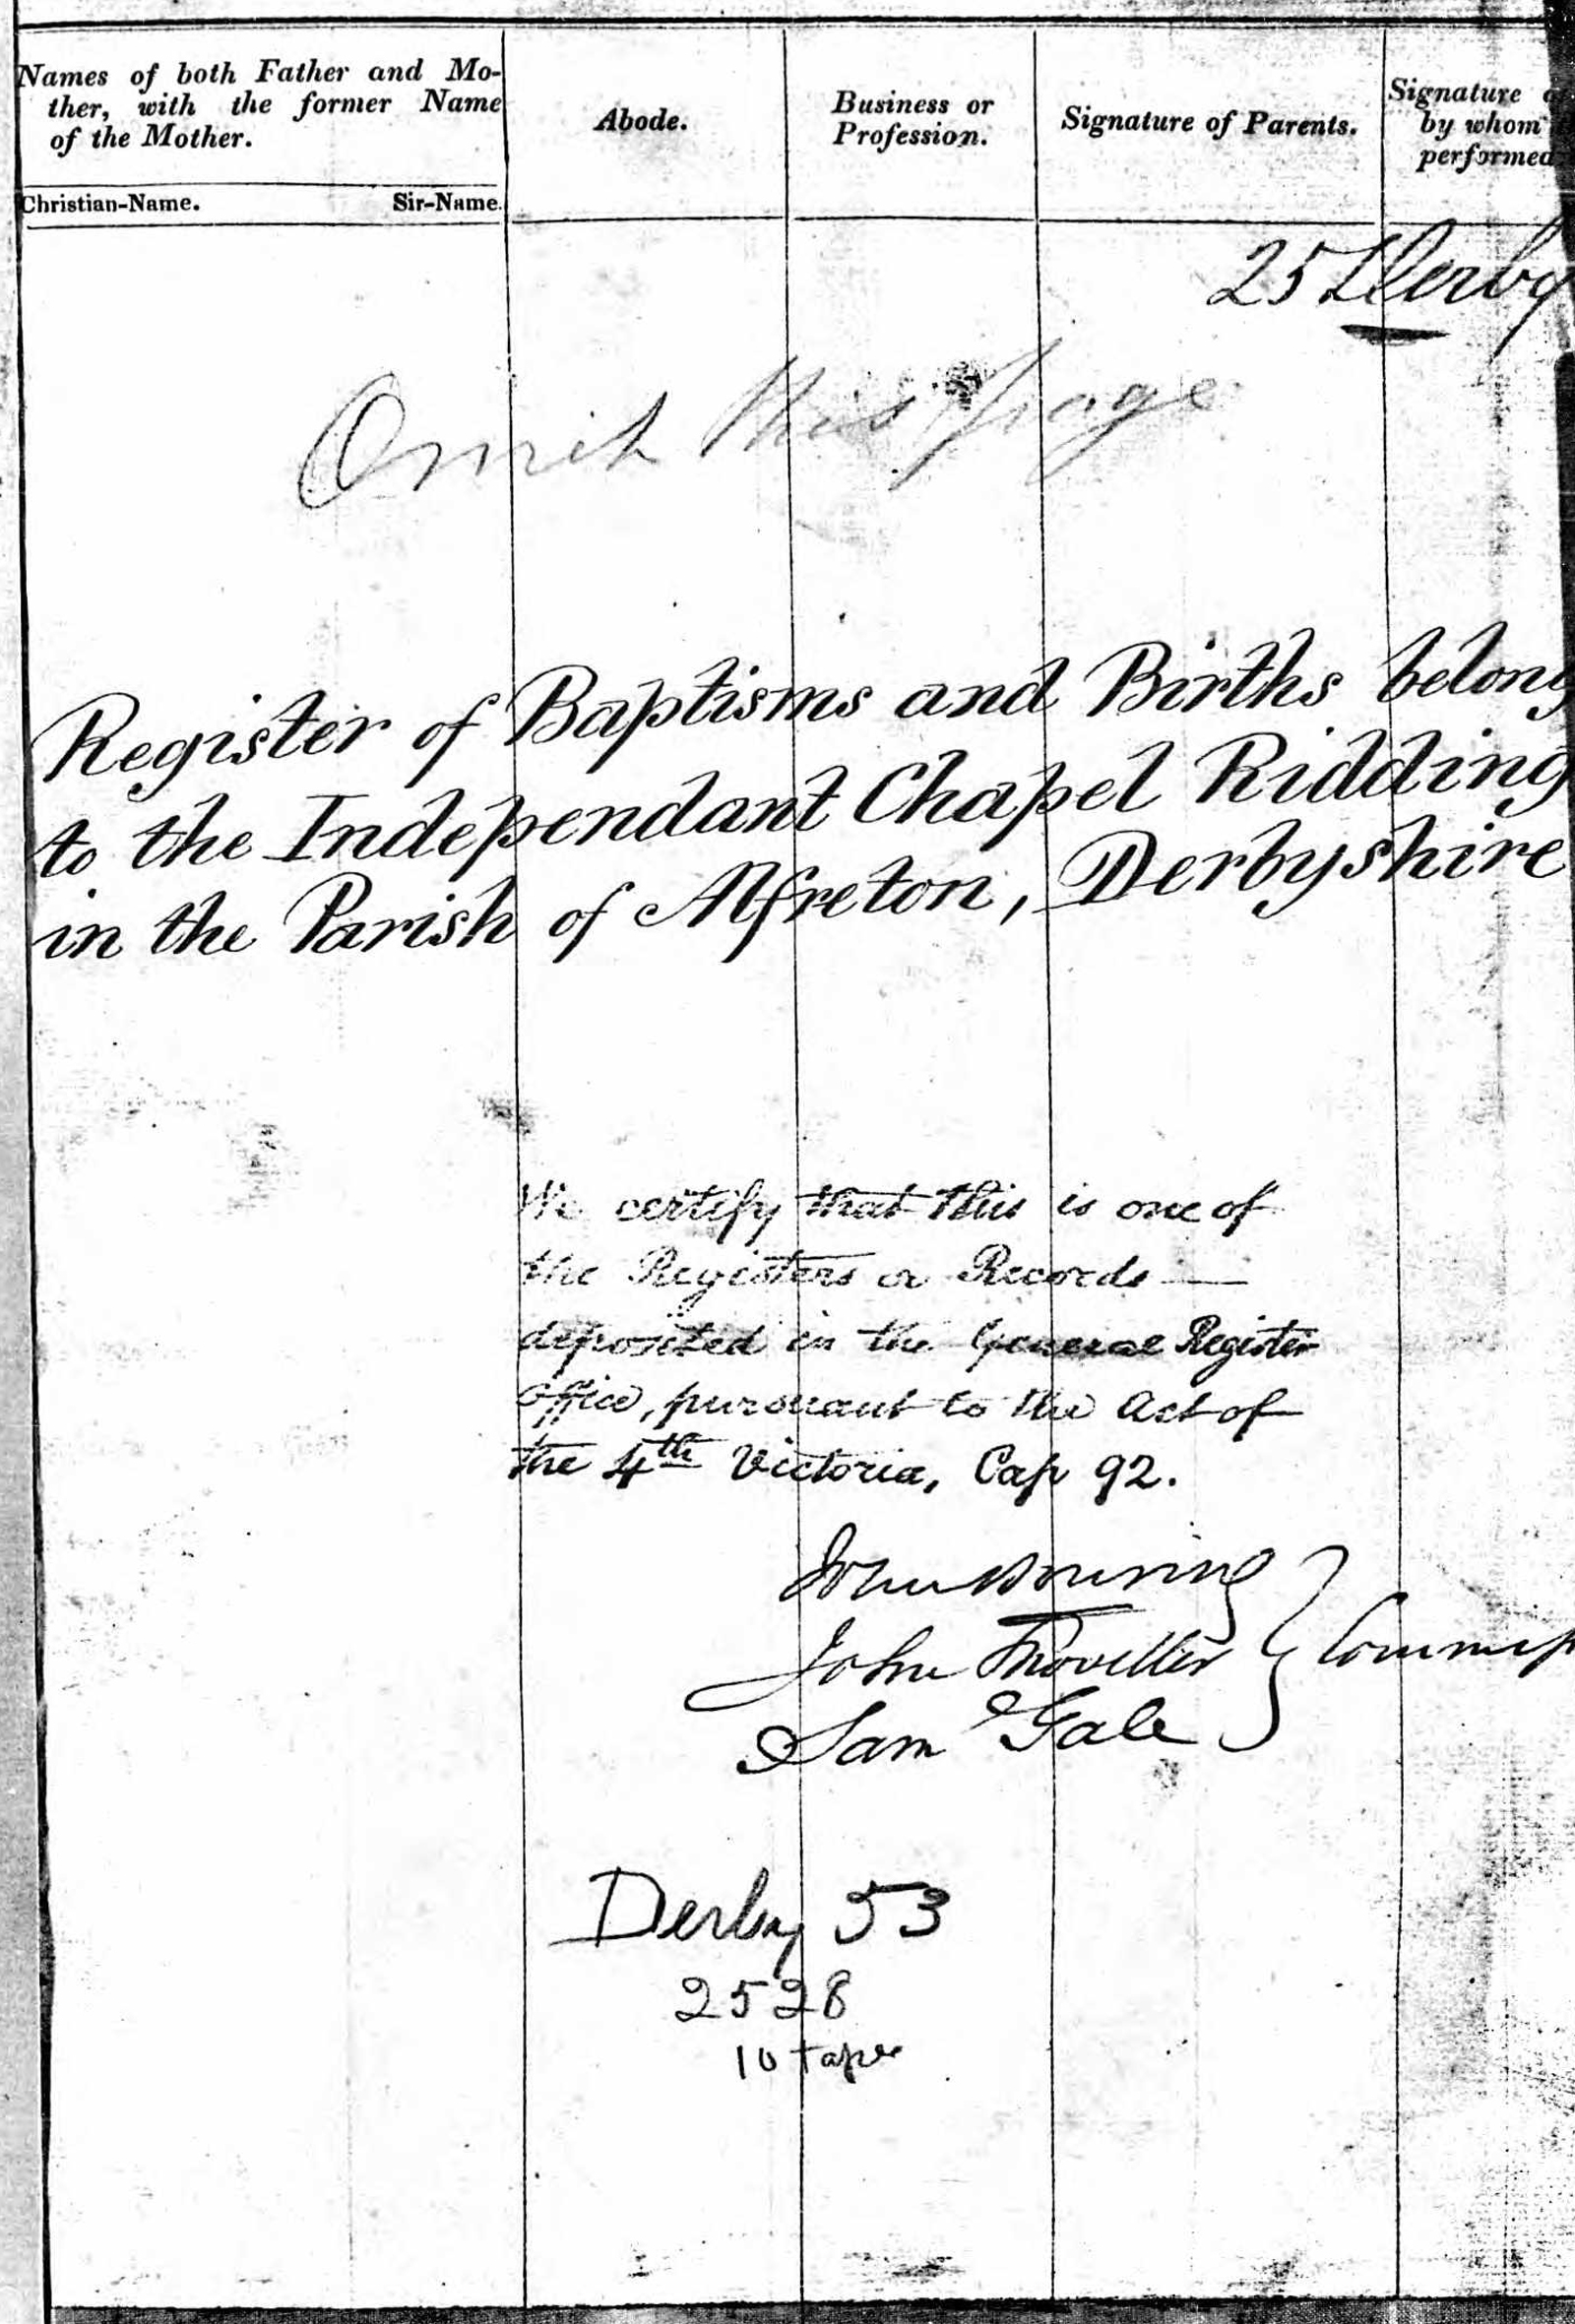 Names of both Father and Mo-
ther, with the former Name
of the Mother.
Christian-Name. Sir-Name.
Abode.
Business or
Profession.
Signature of Parents.
Signature
by whom
performed
25 Derby
Omit this page
Register of Baptisms and Births belong
to the Independant Chapel Ridding
in the Parish of Alfreton, Derbyshire
We certify that this is one of
the Registers or Records
deposited in the General Register
Office, pursuant to the Act of
the 4th Victoria, Cap 92.
John Bowring
John Shoveller
Sam Gale
Derby 53
2528
10 tape